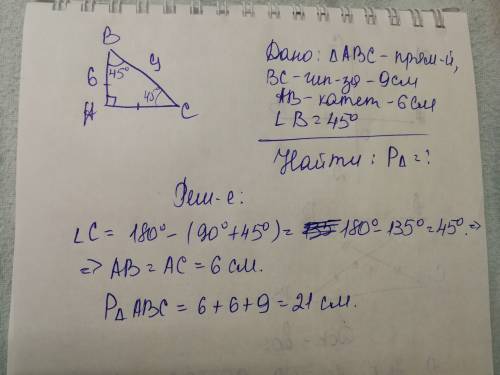 B
9
45°
6
45°
A
C
Дано: ΔABC - прям-й,
BC - гип-за - 9см
AB - катет - 6см
∠B = 45°
Найти: P△ = ?
Реш-е:
∠C = 180° - (90° + 45°) = 180° - 135° = 45°. ⇒
⇒ AB = AC = 6 см.
P△ABC = 6 + 6 + 9 = 21 см.